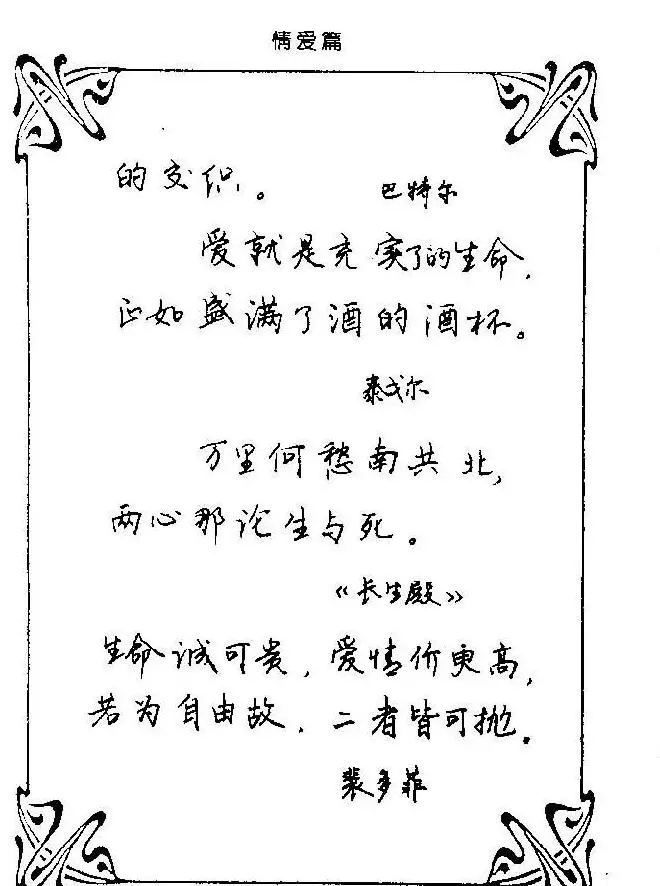 情爱篇
的交织。
巴特尔
爱就是充实了的生命,
正如盛满了酒的酒杯。
泰戈尔
万里何愁南共北,
两心那论生与死。
《长生殿》
生命诚可贵,爱情价更高,
若为自由故,二者皆可抛。
裴多菲